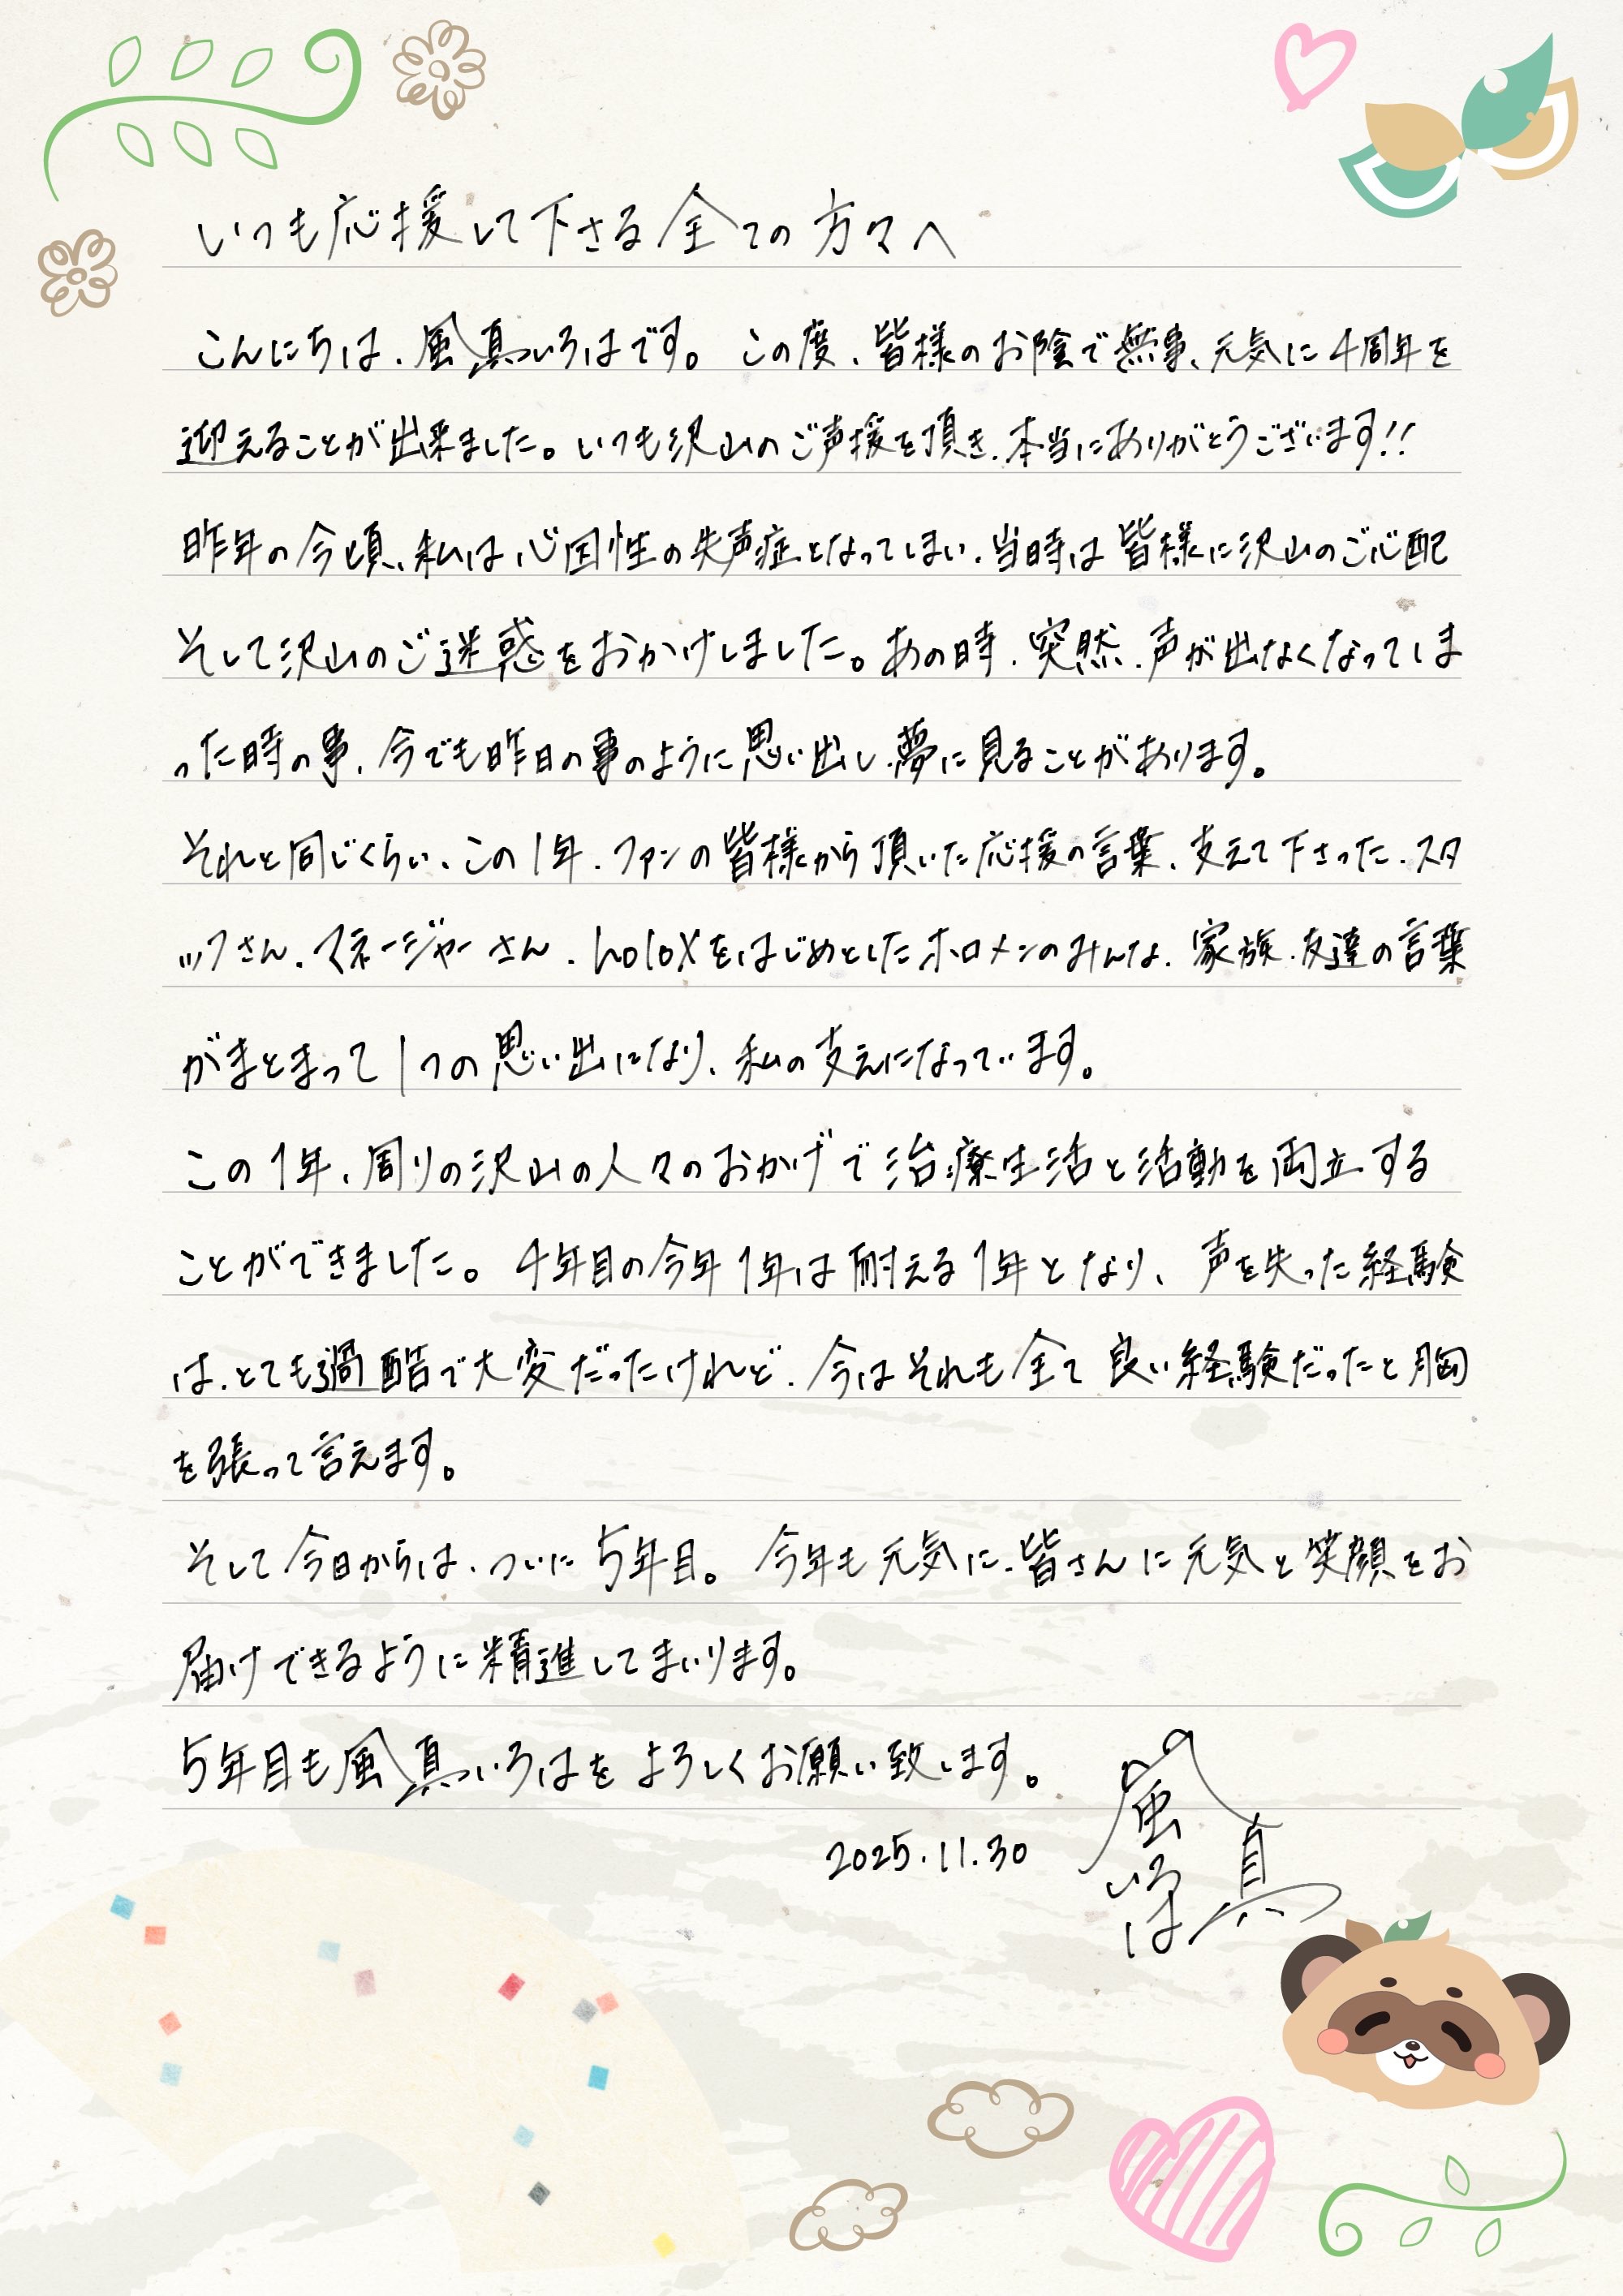 いつも応援して下さる全ての方々へ
こんにちは、風真いろはです。この度、皆様のお陰で無事、元気に4周年を
迎えることが出来ました。いつも沢山のご声援を頂き、本当にありがとうございます!!
昨年の今頃、私は心因性の失声症となってしまい、当時は皆様に沢山のご心配
そして沢山のご迷惑をおかけしました。あの時、突然、声が出なくなってしま
った時の事、今でも昨日の事のように思い出し、夢に見ることがあります。
それと同じくらい、この1年、ファンの皆様から頂いた応援の言葉、支えて下さった、スタ
ッフさん、マネージャーさん、holoXをはじめとしたホロメンのみんな、家族、友達の言葉
がまとまって1つの思い出になり、私の支えになっています。
この1年、周りの沢山の人々のおかげで治療生活と活動を両立する
ことができました。4年目の今年1年は耐える1年となり、声を失った経験
は、とても過酷で大変だったけれど、今はそれも全て良い経験だったと胸
を張って言えます。
そして今日からは、ついに5年目。今年も元気に、皆さんに元気と笑顔をお
届けできるように精進してまいります。
5年目も風真いろはをよろしくお願い致します。
2025.11.30
風真いろは